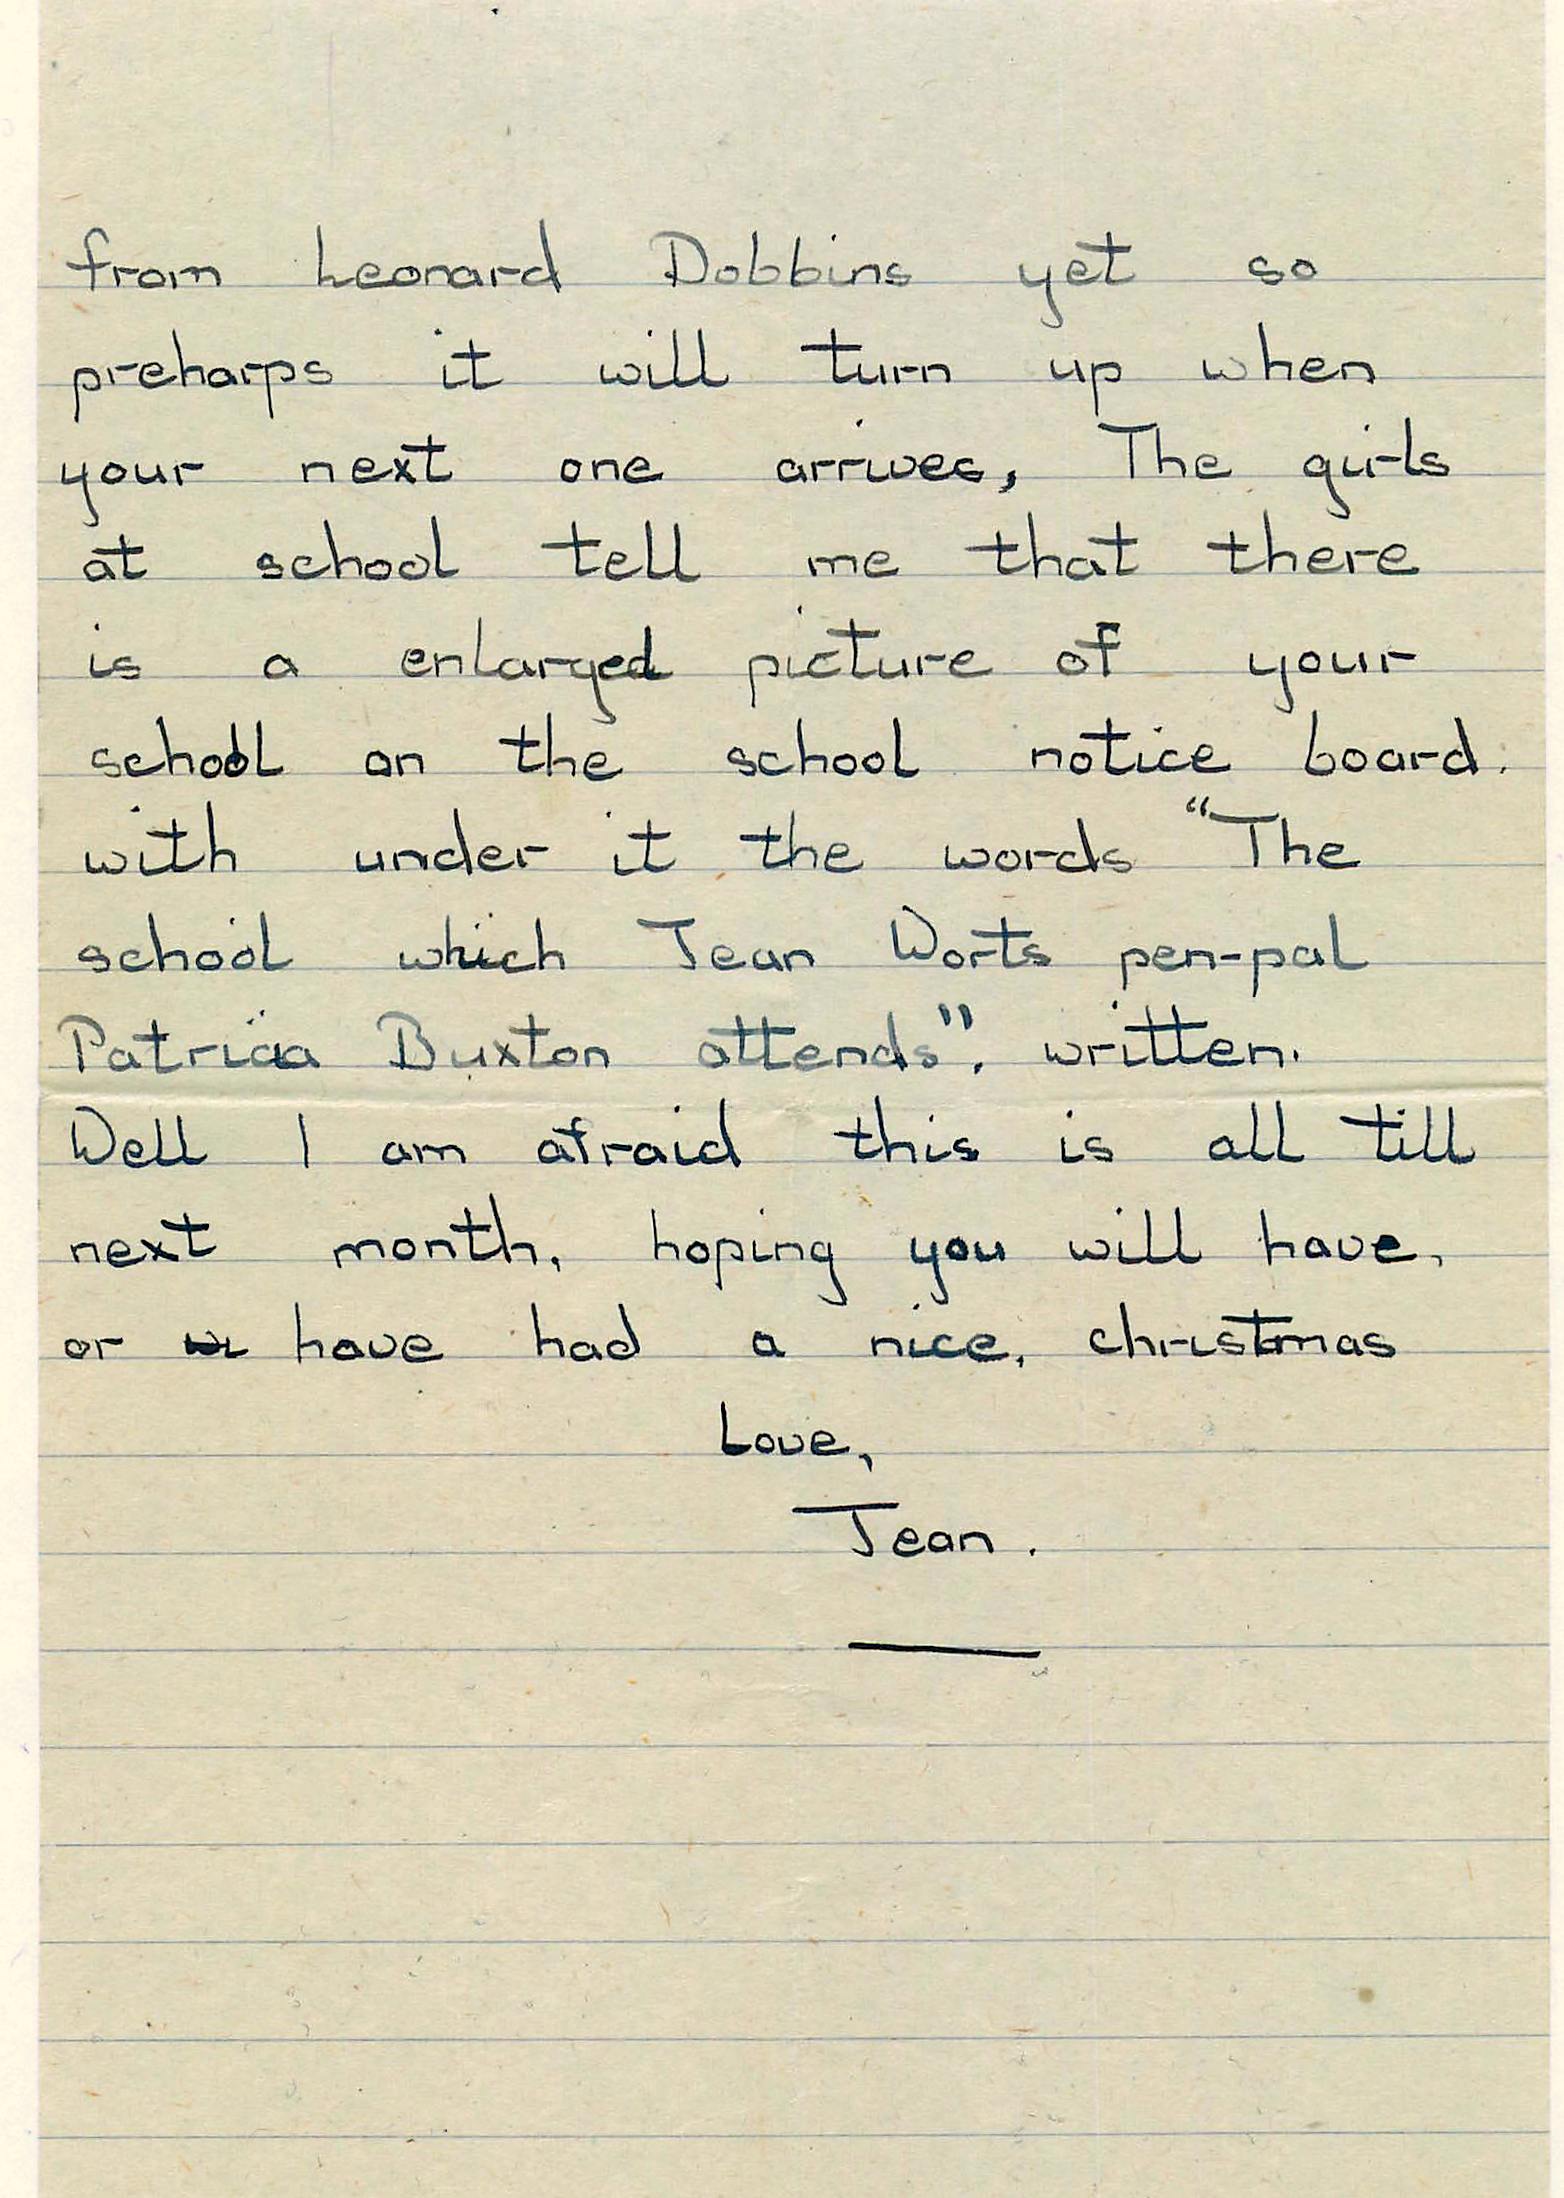 from Leonard Dobbins yet so
preharps it will turn up when
your next one arrives, The girls
at school tell me that there
is a enlarged picture of your
school on the school notice board.
with under it the words "The
school which Jean Worts pen-pal
Patricia Buxton attends". written.
Well I am afraid this is all till
next month, hoping you will have,
or have had a nice, christmas
Love,
Jean.